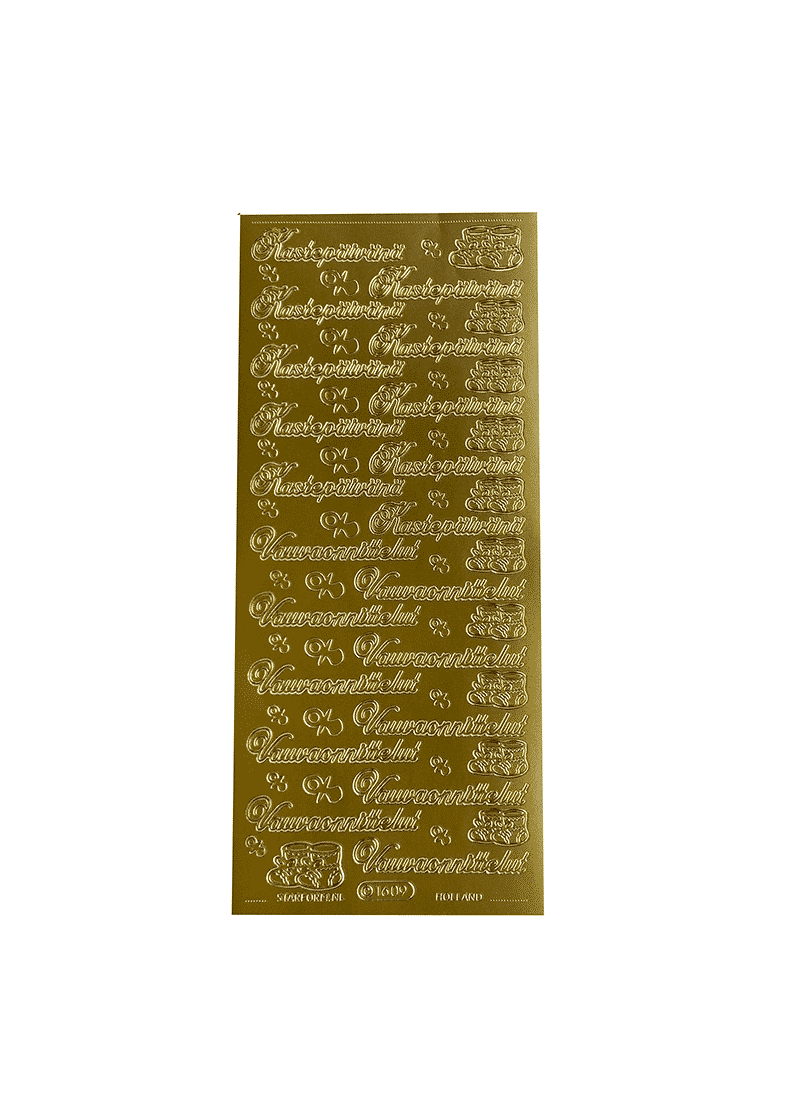 Kastepäivänä
Kastepäivänä
Kastepäivänä
Kastepäivänä
Kastepäivänä
Kastepäivänä
Kastepäivänä
Kastepäivänä
Kastepäivänä
Kastepäivänä
Vauvaonnittelut
Vauvaonnittelut
Vauvaonnittelut
Vauvaonnittelut
Vauvaonnittelut
Vauvaonnittelut
Vauvaonnittelut
Vauvaonnittelut
Vauvaonnittelut
Vauvaonnittelut
STARFORM.NL © 1609 HOLLAND